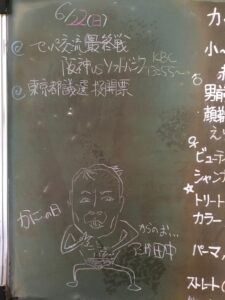 6/22(日)
セ・パ交流最終戦
阪神vsソフトバンク KBC
13:55～
東京都議選 投開票
かにの日
からの、、、
田中
カ
小
男前
顔
え
ビューティ
シャン
トリート
カラー
パーマ
ストレート